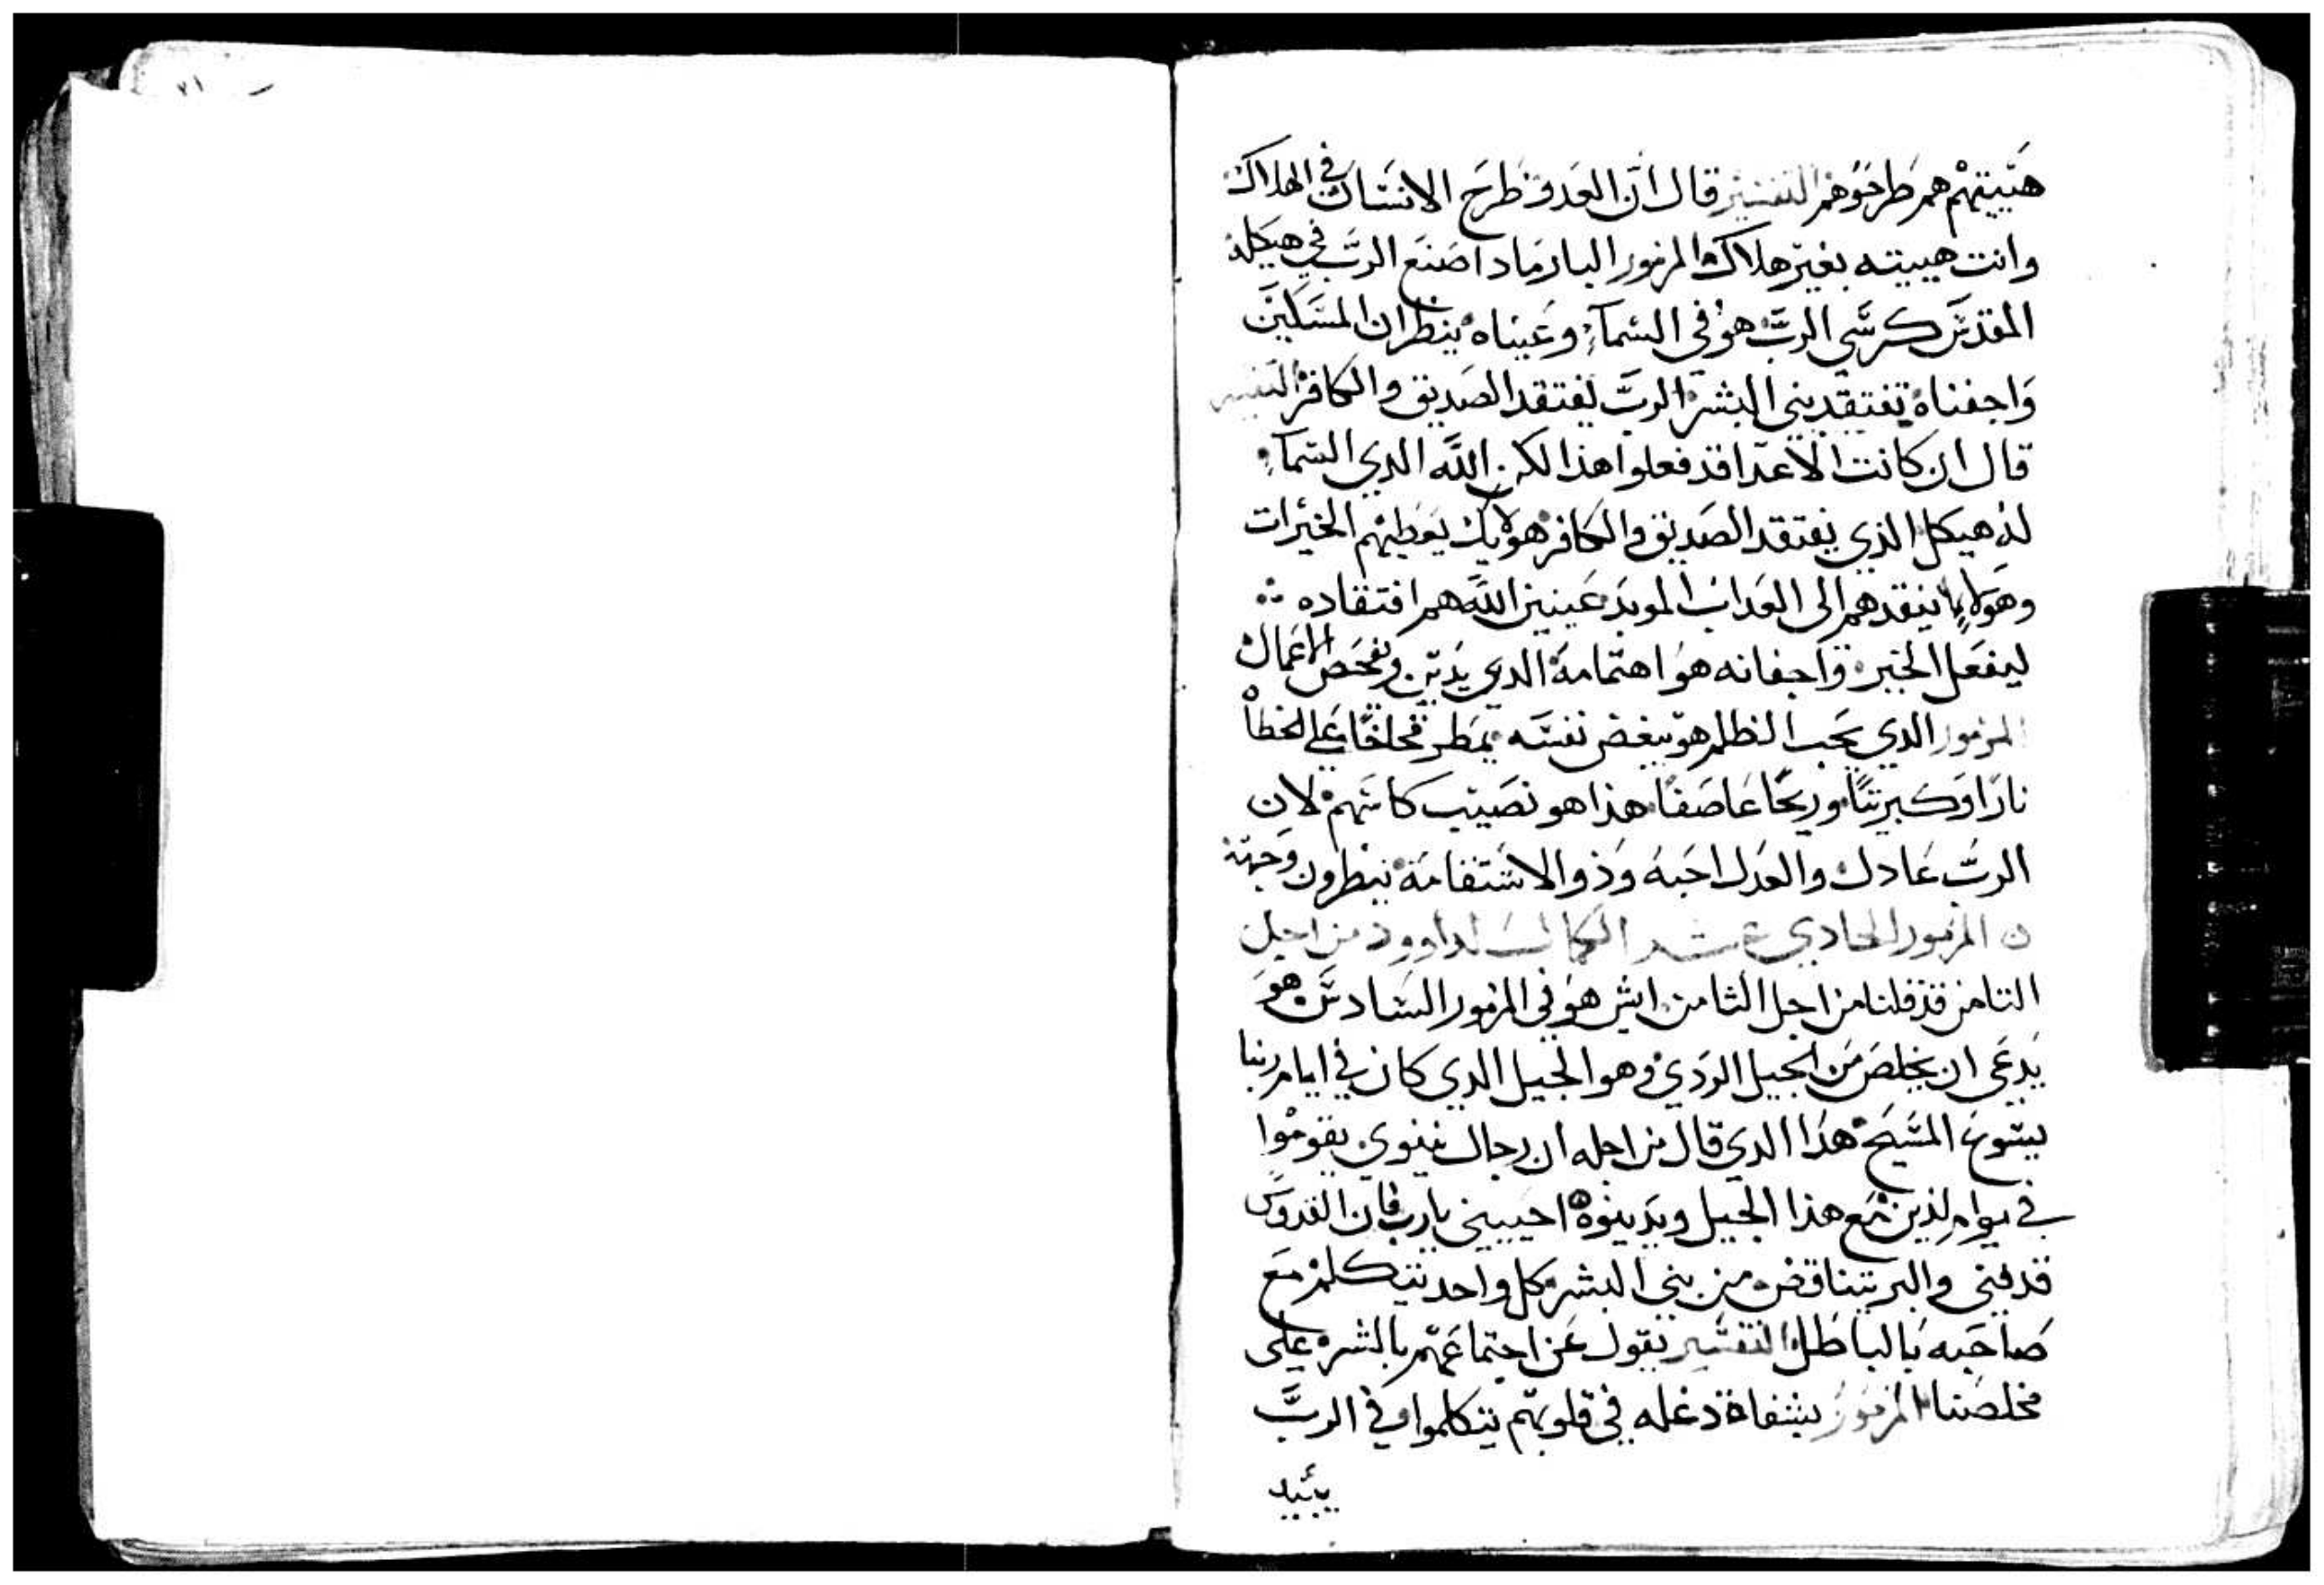 هيبتهم هم طرحوهم التفسير قال ان العدو طرح الانسان في الهلاك
وانت هيبته بغير هلاك المزمور البار ماذا صنع الرب في هيكله
المقدس كرسي الرب هو في السمآء وعيناه ينظران المسكين
واجفناه تفتقد بني البشر الرب يفتقد الصديق والكافر التفسير
قال ان كانت الاعدا قد فعلوا هذا لكن الله الدي السمآء
له هيكل الذي يفتقد الصديق والكافر هولايك يعطيهم الخيرات
وهولاء ينقدهم الى العداب الموبد عينين الله هم افتقاده
ليفعل الخير واجفانه هو اهتمامه الدي يدين ويفحص الاعمال
المزمور الدي يحب الظلم هو يبغض نفسه يمطر فخاخا على الخطاه
نارا وكبريتا وريحا عاصفا هذا هو نصيب كاسهم لان
الرب عادل والعدل احبه وذو الاستقامة ينظرون وجهه
المزمور الحادي عشر الكمال لداوود من اجل
التامن قد قلنا من اجل الثامن ايش هو في المزمور السادس هو
يدعى ان يخلص من الجيل الردي وهو الجيل الدي كان في ايام ربنا
يسوع المسيح هذا الدي قال من اجله ان رجال نينوي يقوموا
في يوام لدين مع هذا الجيل ويدينوه احييني يارب فان القدوس
قد فني والبر تناقض من بني البشر كل واحد يتكلم مع
صاحبه بالباطل التفسير يقول عن اجتماعهم بالشر على
مخلصنا المزمور بشفاة دغله في قلوبهم يتكلموا في الرب
يبيد
٢١